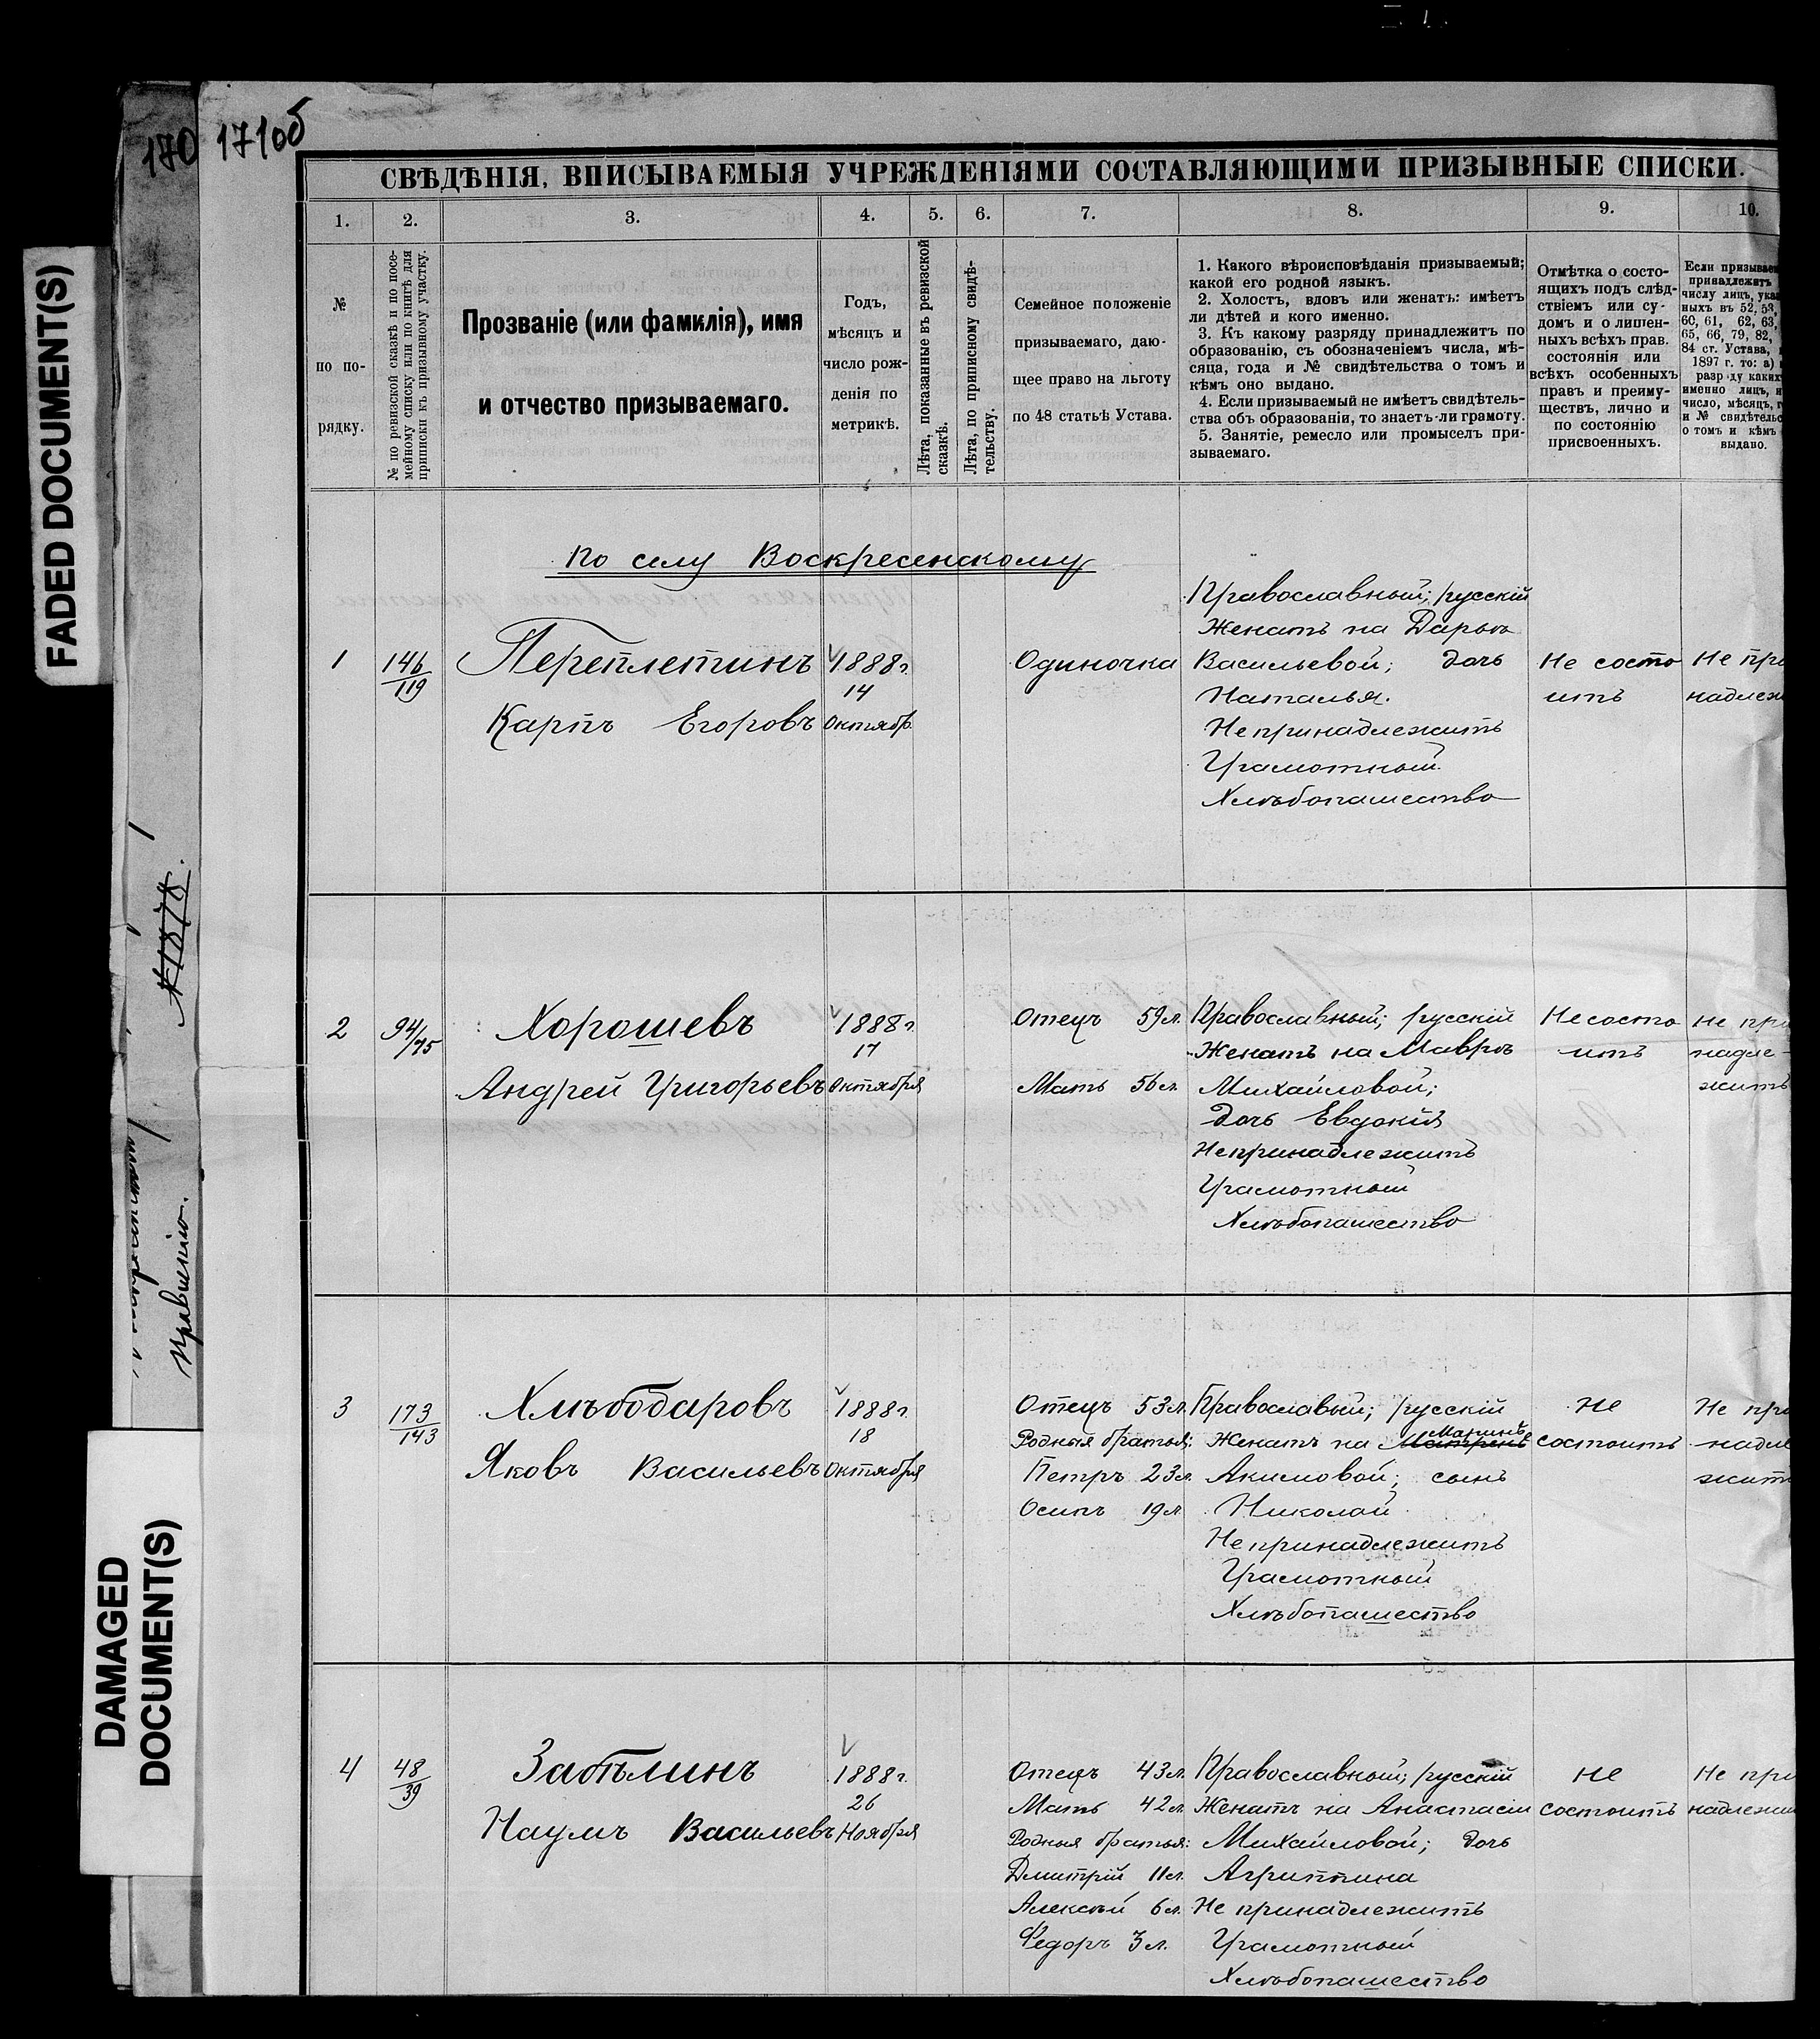 FADED DOCUMENT(S)
DAMAGED
DOCUMENT(S)
170
171об
№ 1878.
правленію.
СВѢДѢНІЯ, ВПИСЫВАЕМЫЯ УЧРЕЖДЕНІЯМИ СОСТАВЛЯЮЩИМИ ПРИЗЫВНЫЕ СПИСКИ.
1. 2. 3. 4. 5. 6. 7. 8. 9. 10.
№
по по-
рядку.
№ по ревизской сказкѣ и по посе-
мейному списку или по книгѣ для
приписки къ призывному участку.
Прозваніе (или фамилія), имя
и отчество призываемаго.
Годъ,
мѣсяцъ и
число рож-
денія по
метрикѣ.
Лѣта, показанные въ ревизской
сказкѣ.
Лѣта, по приписному свидѣ-
тельству.
Семейное положеніе
призываемаго, даю-
щее право на льготу
по 48 статьѣ Устава.
1. Какого вѣроисповѣданія призываемый;
какой его родной языкъ.
2. Холостъ, вдовъ или женатъ: имѣетъ
ли дѣтей и кого именно.
3. Къ какому разряду принадлежитъ по
образованію, съ обозначеніемъ числа, мѣ-
сяца, года и № свидѣтельства о томъ и
кѣмъ оно выдано.
4. Если призываемый не имѣетъ свидѣтель-
ства объ образованіи, то знаетъ-ли грамоту.
5. Занятіе, ремесло или промыселъ при-
зываемаго.
Отмѣтка о состо-
ящихъ подъ слѣд-
ствіемъ или су-
домъ и о лишен-
ныхъ всѣхъ прав.
состоянія или
всѣхъ особенныхъ
правъ и преиму-
ществъ, лично и
по состоянію
присвоенныхъ.
Если призывае
принадлежитъ
числу лицъ, ука
ныхъ въ 52, 53,
60, 61, 62, 63,
65, 66, 79, 82,
84 ст. Устава,
1897 г. то: а)
разр ду каких
именно лицъ, и
число, мѣсяцъ, г
и № свидѣтельс
о томъ и кѣмъ
выдано.
По селу Воскресенскому
1
146
119
Переплетинъ
Карпъ Егоровъ
1888г.
14
Октябр.
Одиночка
Православный; русскій
Женатъ на Дарьѣ
Васильевой; дочь
Наталья.
Не принадлежитъ
Грамотный
Хлѣбопашество
Не состо
итъ
Не при
надлеж
2
94/75
Хорошевъ
Андрей Григорьевъ
1888г.
17
Октября
Отецъ 59л.
Мать 56л.
Православный; русскій
Женатъ на Маврѣ
Михайловой;
дочь Евдокія
Не принадлежитъ
Грамотный
Хлѣбопашество
Не состо
итъ
Не при
надле-
житъ
3
173
143
Хлѣбодаровъ
Яковъ Васильевъ
1888г.
18
Октября
Отецъ 53л.
Родныя братья:
Петръ 23л.
Осипъ 19л.
Православый; русскій
Женатъ на Матренѣ Маринѣ
Акимовой; сынъ
Николай
Не принадлежитъ
Грамотный
Хлѣбопашество
Не
состоитъ
Не при
надле
жит
4
48
39
Забѣлинъ
Наумъ Васильевъ
1888г.
26
Ноября
Отецъ 43л.
Мать 42л.
Родныя братья:
Дмитрій 11л.
Алексѣй 6л.
Федоръ 3л.
Православный; русскій
Женатъ на Анастасіи
Михайловой; дочь
Агриппина
Не принадлежитъ
Грамотный
Хлѣбопашество
Не
состоитъ
Не при
надлежи